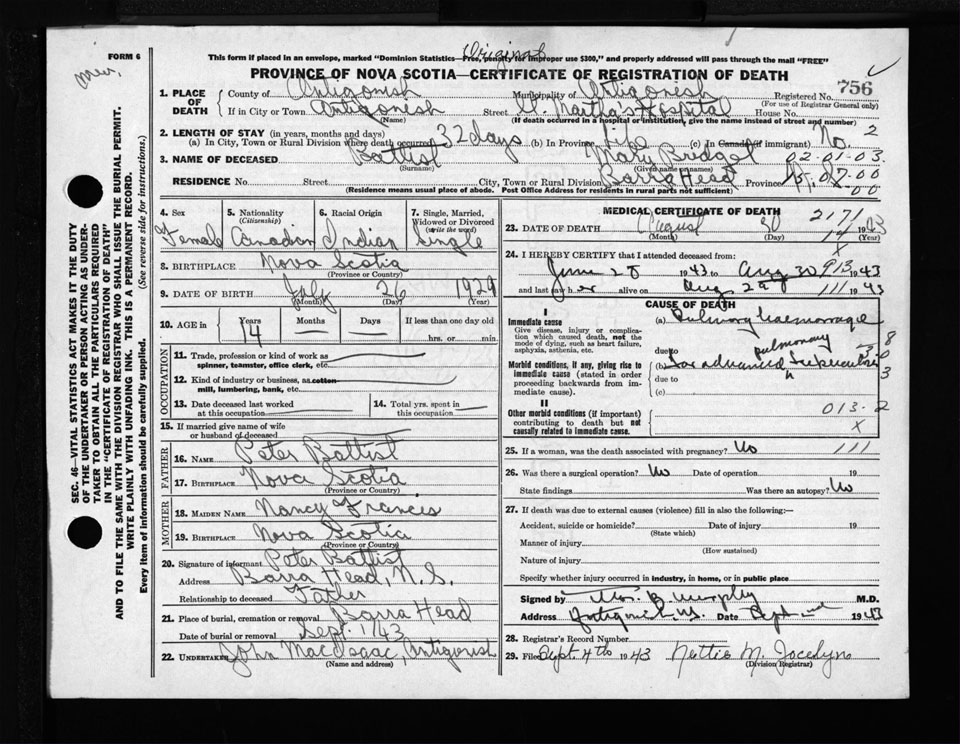 Original
FORM 6
This form if placed in an envelope, marked "Dominion Statistics—Free, penalty for improper use $300," and properly addressed will pass through the mail "FREE"
PROVINCE OF NOVA SCOTIA—CERTIFICATE OF REGISTRATION OF DEATH
SEC. 46—VITAL STATISTICS ACT MAKES IT THE DUTY
OF THE UNDERTAKER OR PERSON ACTING AS UNDER-
TAKER TO OBTAIN ALL THE PARTICULARS REQUIRED
IN THE "CERTIFICATE OF REGISTRATION OF DEATH"
AND TO FILE THE SAME WITH THE DIVISION REGISTRAR WHO SHALL ISSUE THE BURIAL PERMIT.
WRITE PLAINLY WITH UNFADING INK. THIS IS A PERMANENT RECORD.
Every item of information should be carefully supplied. (See reverse side for instructions.)
1. PLACE OF DEATH
County of Antigonish Municipality of Antigonish Registered No. 756
(For use of Registrar General only)
If in City or Town Antigonish Street St. Martha's Hospital House No.
(Name) (If death occurred in a hospital or institution, give the name instead of street and number)
2. LENGTH OF STAY (in years, months and days)
(a) In City, Town or Rural Division where death occurred 32 days (b) In Province Life (c) In Canada (if immigrant) No 2
3. NAME OF DECEASED Battist Mary Bridget 02-01-03.
(Surname) (Given name or names)
RESIDENCE No. Street City, Town or Rural Division Barra Head Province N.S. 07-00
00
(Residence means usual place of abode. Post Office Address for residents in rural parts not sufficient)
4. Sex
Female
5. Nationality
(Citizenship)
Canadian
6. Racial Origin
Indian
7. Single, Married,
Widowed or Divorced
(write the word)
Single
8. BIRTHPLACE Nova Scotia
(Province or Country)
9. DATE OF BIRTH July 26 1929
(Month) (Day) (Year)
10. AGE in
Years Months Days If less than one day old
14 hrs. or min.
OCCUPATION
11. Trade, profession or kind of work as
spinner, teamster, office clerk, etc.
12. Kind of industry or business, as cotton
mill, lumbering, bank, etc.
13. Date deceased last worked
at this occupation
14. Total yrs. spent in
this occupation
15. If married give name of wife
or husband of deceased
FATHER
16. NAME Peter Battist
17. BIRTHPLACE Nova Scotia
(Province or Country)
MOTHER
18. MAIDEN NAME Nancy Francis
19. BIRTHPLACE Nova Scotia
(Province or Country)
20. Signature of informant Peter Battist
Address Barra Head, N.S.
Relationship to deceased Father
21. Place of burial, cremation or removal Barra Head
Date of burial or removal Sept. 1/43
22. UNDERTAKER John MacIsaac, Antigonish
(Name and address)
MEDICAL CERTIFICATE OF DEATH 2171
23. DATE OF DEATH August 30 1943
(Month) (Day) (Year)
24. I HEREBY CERTIFY that I attended deceased from:
June 28 1943 to Aug 30 1943
913
and last saw her alive on Aug 29 1943
111
CAUSE OF DEATH
I
Immediate cause
Give disease, injury or complica-
tion which caused death, not the
mode of dying, such as heart failure,
asphyxia, asthenia, etc.
(a) Pulmonary haemorrhage
due to
pulmonary
Morbid conditions, if any, giving rise to
immediate cause (stated in order
proceeding backwards from im-
mediate cause).
(b) Far advanced tuberculosis
due to
(c)
II
Other morbid conditions (if important)
contributing to death but not
causally related to immediate cause.
013-2
X
25. If a woman, was the death associated with pregnancy? No 111
26. Was there a surgical operation? No Date of operation 19
State findings Was there an autopsy? No
27. If death was due to external causes (violence) fill in also the following:—
Accident, suicide or homicide? Date of injury 19
(State which)
Manner of injury
(How sustained)
Nature of injury
Specify whether injury occurred in industry, in home, or in public place
Signed by B. Murphy M.D.
Address Antigonish, N.S. Date Sept 1943
28. Registrar's Record Number
29. Filed Sept. 4th 1943 Nettie M. Jocelyn
(Division Registrar)